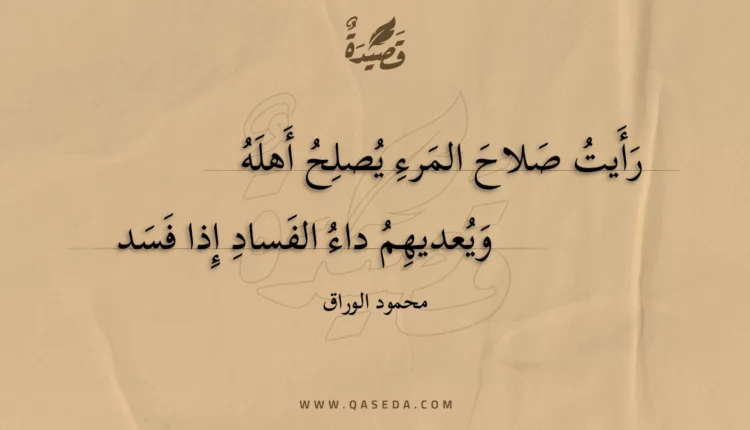 قَصِيْدَةٌ
رَأَيتُ صَلاحَ المَرءِ يُصلِحُ أَهلَهُ
وَيُعديهِمُ داءُ الفَسادِ إِذا فَسَد
محمود الوراق
WWW.QASEDA.COM